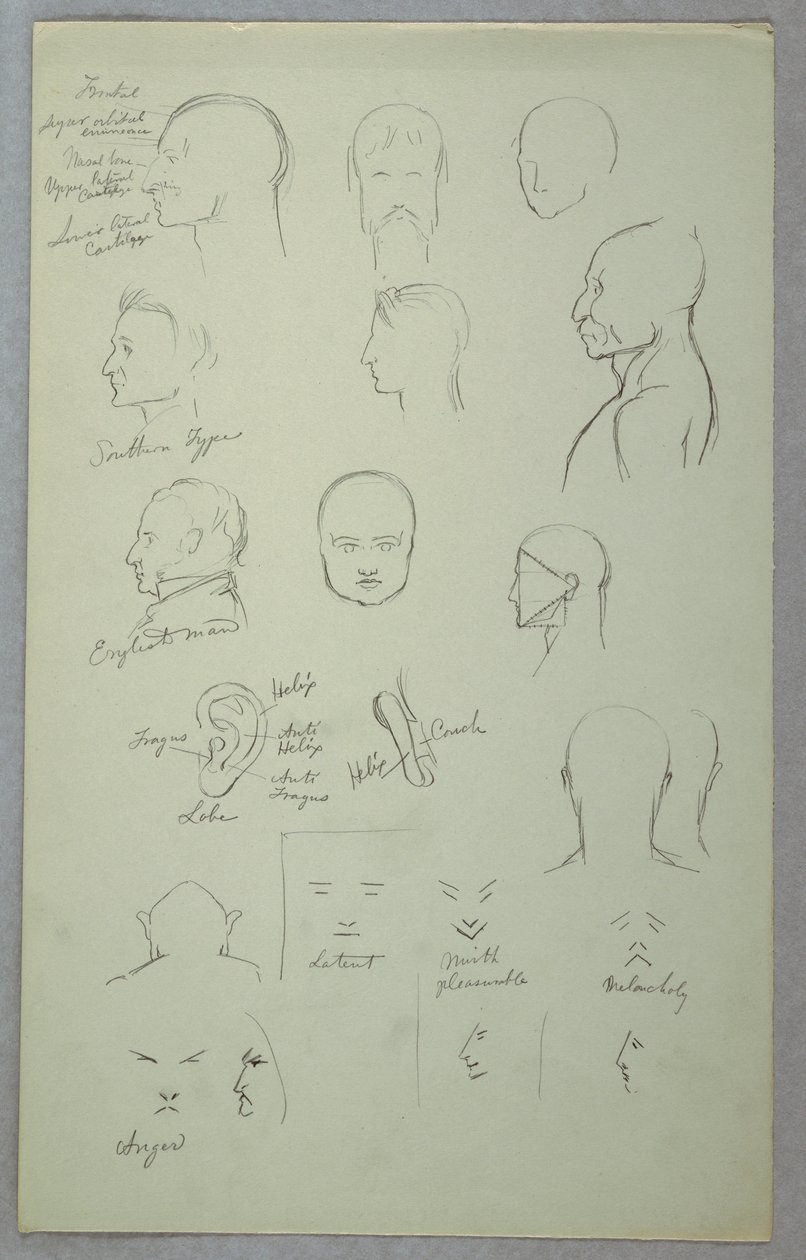 Frontal
super orbital
eminence
Nasal bone
Upper lateral
Cartilage
Lower lateral
Cartilage
Southern Type
English man
Helix
Tragus
Anti
Helix
Anti
Tragus
Lobe
Conch
Helix
Latent
Mirth
pleasurable
Melancholy
Anger